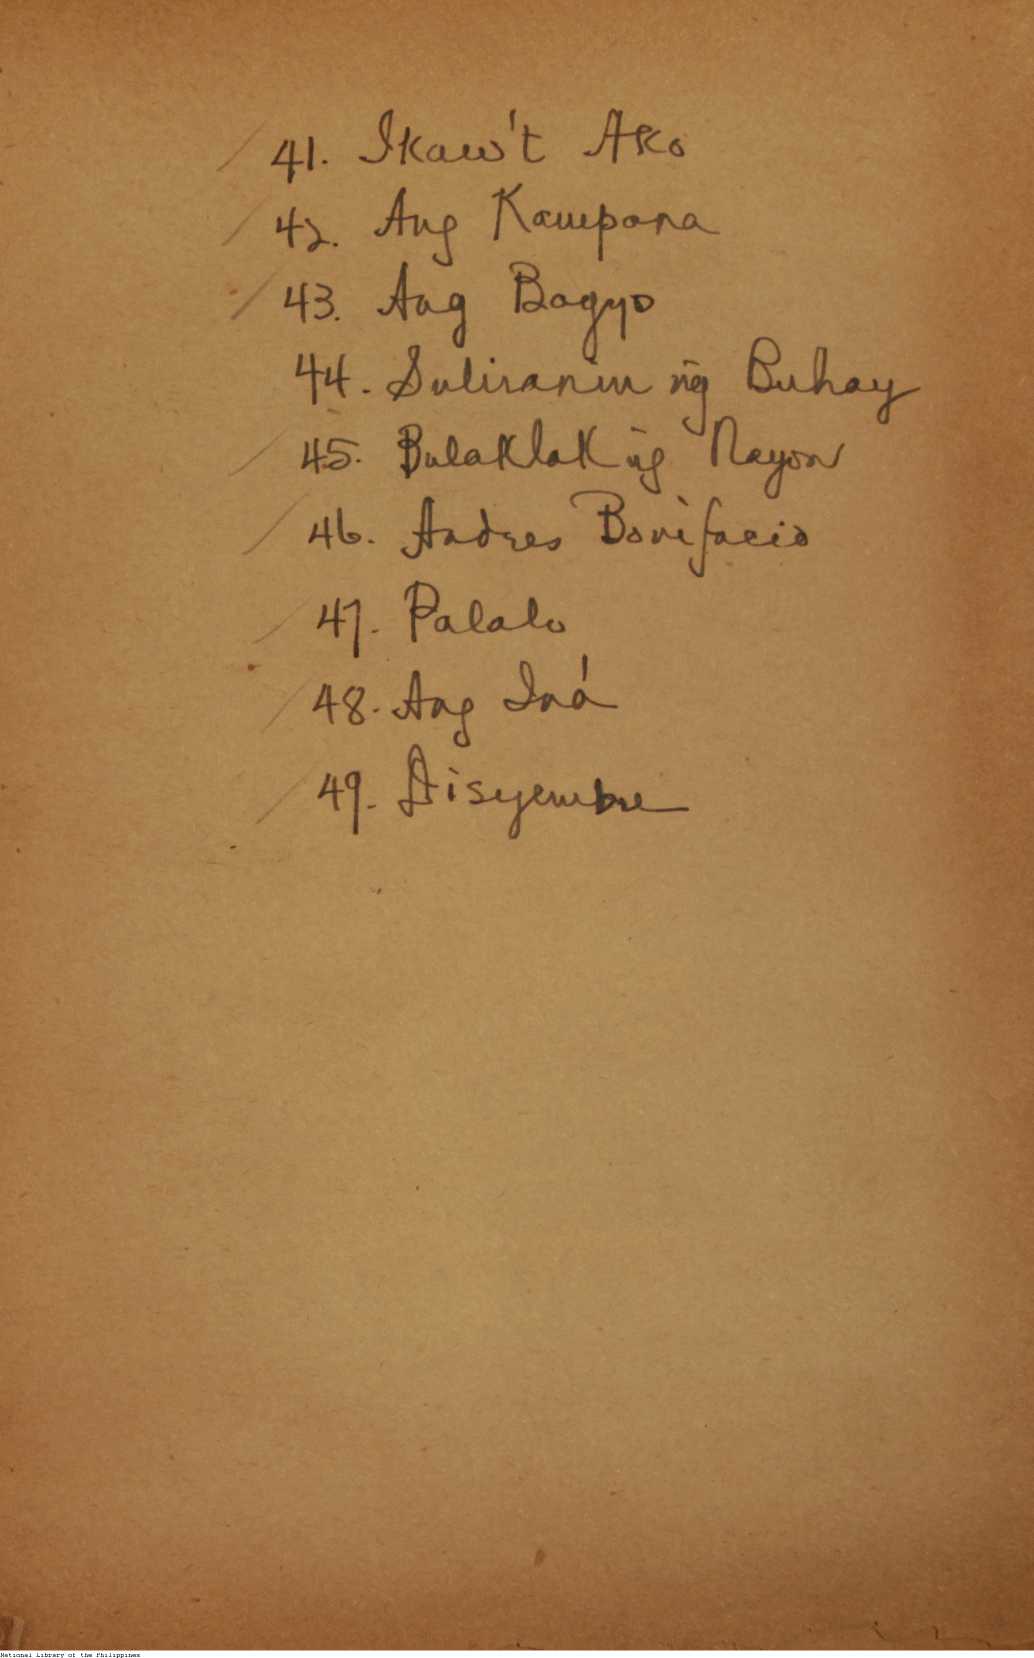 41. Ikaw't Ako
42. Ang Kampana
43. Ang Bagyo
44. Suliranin ng Buhay
45. Bulaklak ng Nayon
46. Andres Bonifacio
47. Palalo
48. Ang Iná
49. Disyembre
National Library of the Philippines